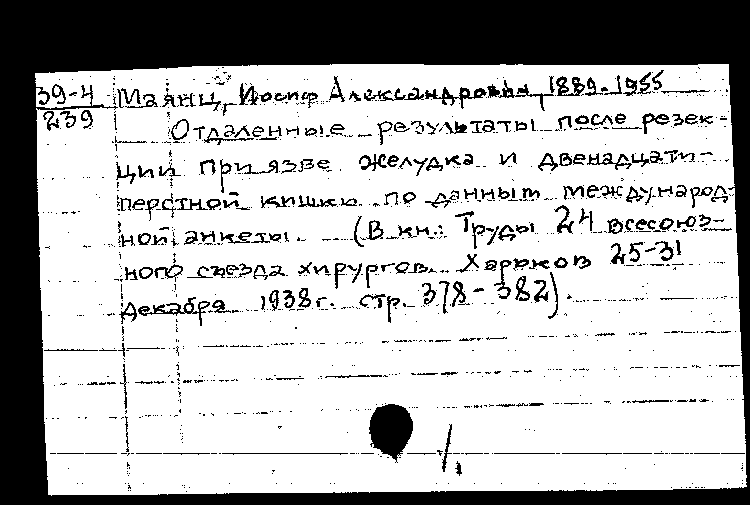 39-4 Маянц, Иосиф Александрович, 1889-1955
239 Отдаленные результаты после резек-
ции при язве желудка и двенадцати-
перстной кишки по данным международ-
ной анкеты. (В кн.: Труды 24 всесоюз-
ного съезда хирургов. Харьков 25-31
декабря 1938 г. стр. 378-382).